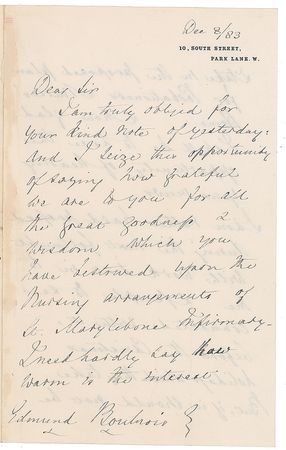 Dec 8/83
10, SOUTH STREET,
PARK LANE. W.
Dear Sir
I am truly obliged for
your kind note of yesterday:
and I seize this opportunity
of saying how grateful
we are to you for all
the great goodness &
wisdom which you
have bestowed upon the
Nursing arrangements of
St. Marylebone Infirmary.
I need hardly say how
warm is the interest
Edmund Boulnois